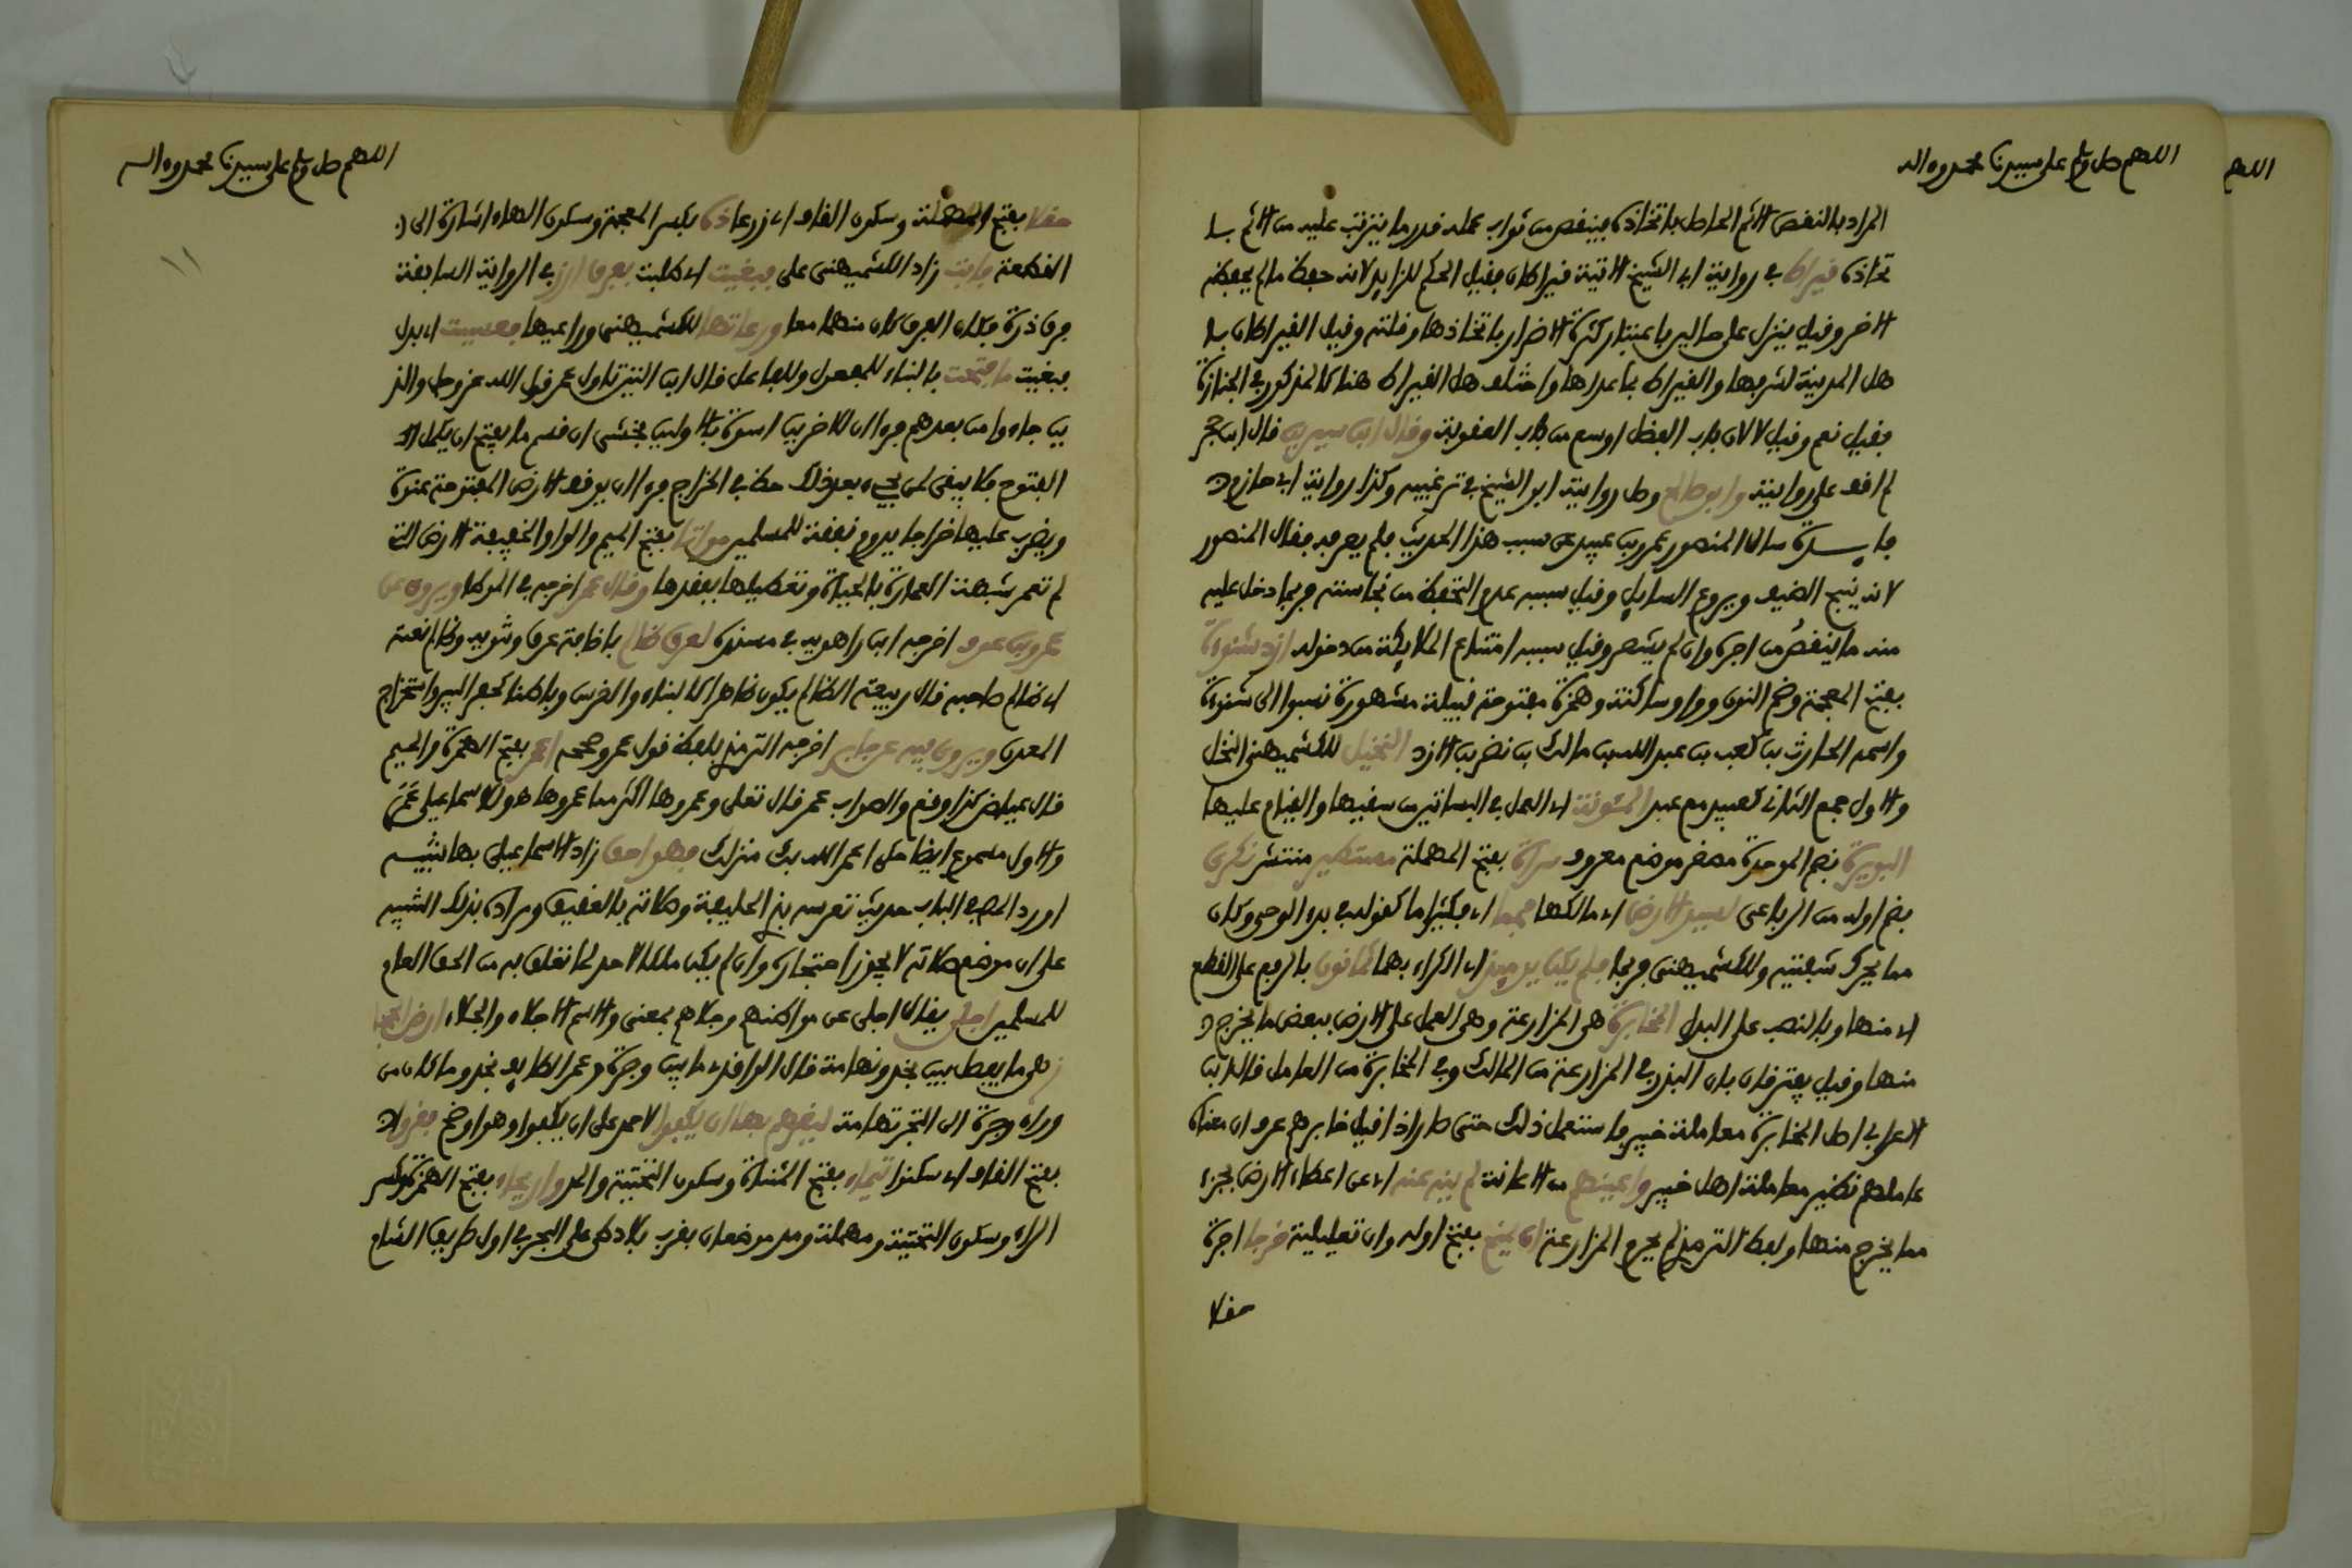 اللهم صل وسلم على سيدنا محمد وءاله
المراد بالنقص الاثم الحاصل باتخاذه ينقص من ثواب عمله قدر ما يترتب عليه من الاثم با
تخاذه قيراط في رواية ابي الشيخ الاتية قيراطان فقيل الحكم للزايد لانه حفظ ما لم يحفظه
الاخر وقيل ينزل على حالين باعتبار كثرة الاضرار باتخاذها وقلته وقيل القيراطان با
هل المدينة لشرفها والقيراط بما عداها واختلف هل القيراط هنا كالمذكور في الجنازة
فقيل نعم وقيل لا لان باب الفضل اوسع من باب العقوبة وقال ابن سيرين قال ابن حجر
لم اقف على روايته وابو صالح وصل روايته ابو الشيخ في ترغيبه وكذا رواية ابي حازم
فايدة سال المنصور عمرو بن عبيد عن سبب هذا الحديث فلم يعرفه فقال المنصور
لانه ينبح الضيف ويروع السايل وقيل سببه عدم التحفظ من نجاسته فربما دخل عليه
منه ما ينقص من اجره وان لم يشعر وقيل سببه امتناع الملايكة من دخوله ازد شنوءة
بفتح المعجمة وضم النون وواو ساكنة وهمزة مفتوحة قبيلة مشهورة نسبوا الى شنوءة
واسمه الحارث بن كعب بن عبد الله بن مالك بن نضر بن الازد النخيل للكشميهني النخل
والاول جمع الثاني كعبيد مع عبد المئونة اي العمل في البساتين من سقيها والقيام عليها
البويرة بضم الموحدة مصغر موضع معروف سراة بفتح المهملة مستطير منتشر نكري
بضم اوله من الرباعي لسيد الارض اي مالكها فمما اي فكثيرا ما كقوله في بدء الوحي وكان
مما يحرك شفتيه وللكشميهني فربما فلم يكن يوميذ اي الكراء بهما ثمانون بالرفع على القطع
اي منها وبالنصب على البدل المخابرة هي المزارعة وهي العمل على الارض ببعض ما يخرج
منها وقيل يفترقان بان البذر في المزارعة من المالك وفي المخابرة من العامل قال ابن
الاعرابي اصل المخابرة معاملة خيبر فاستعمل ذلك حتى صار اذا قيل خابرهم عرف ان معناه
عاملهم نظير معاملة اهل خيبر واعينهم من الاعانة لم ينه عنه اي عن اعطاء الارض بجزء
مما يخرج منها ولفظ الترمذي لم يحرم المزارعة ان يمنح بفتح اوله وان تعليلية خرجا اجرة
حقلا
اللهم صل وسلم على سيدنا محمد وءاله
حقلا بفتح المهملة وسكون القاف اي زرعا ذه بكسر المعجمة وسكون الهاء اشارة الى
القطعة فابت زاد الكشميهني على فبغيت اي طلبت بفرق ارز في الرواية السابقة
فرق ذرة فكان الفرق كان منهما معا ورعاتها للكشميهني وراعيها فسعيت اي بدل
فبغيت ما فتحت بالبناء للمفعول وللفاعل قال ابن التين تاول عمر قول الله عز وجل والذ
ين جاءوا من بعدهم فرءا ان للاخرين اسوة بالاولين فخشي ان قسم ما يفتح ان يكمل
الفتوح فلا يبقى لمن يجيء بعد ذلك حظ في الخراج فرءا ان يوقف الارض المفتوحة عنوة
ويضرب عليها خراجا يدوم نفعه للمسلمين مواتا بفتح الميم والواو الخفيفة الارض التي
لم تعمر شبهت العمارة بالحياة وتعطيلها بفقدها وقال عمر اخرجه في الموطا ويروى عن
عمرو بن عوف اخرجه ابن راهويه في مسنده لعرق ظالم باضافة عرق وتنوينه وظالم نعته
اي ظالم صاحبه قال ربيعة الظالم يكون ظاهرا كالبناء والغرس وباطنا كحفر البير واستخراج
المعدن ويروى فيه عن جابر اخرجه الترمذي بلفظ قول عمر وصححه اعمر بفتح الهمزة والميم
قال عياض كذا وقع والصواب عمر قال تعلى وعمروها اكثر مما عمروها هو للاسماعيلي عمر
والاول مسموع ايضا حكى اعمر الله بك منزلك فهو احق زاد الاسماعيلي بها تنبيه
اورد المص في الباب حديث تعريسه بذي الحليفة وصلاته بالعقيق ومراده بذلك التنبيه
على ان موضع صلاته لا يجوز احتجاره وان لم يكن ملكا لاحد لما تعلق به من الحق العام
للمسلمين اجلى يقال اجلى عن مواطنهم وجلاهم بمعنى والاسم الاجلاء والجلاء ارض الحجا
ز هي ما يفصل بين نجد وتهامة قال الواقدي ما بين وجرة وعمر الطايف نجد وما كان من
وراء وجرة الى البحر تهامة ليقرهم بها ان يكفوا لاحمد على ان يكفوا وهو اوضح فقروا
بفتح القاف اي سكنوا تيماء بفتح المثناة وسكون التحتية والمد واريحاء بفتح الهمزة وكسر
الراء وسكون التحتية ومهملة ومد موضعان بقرب بلاد طي على البحر في اول طريق الشام